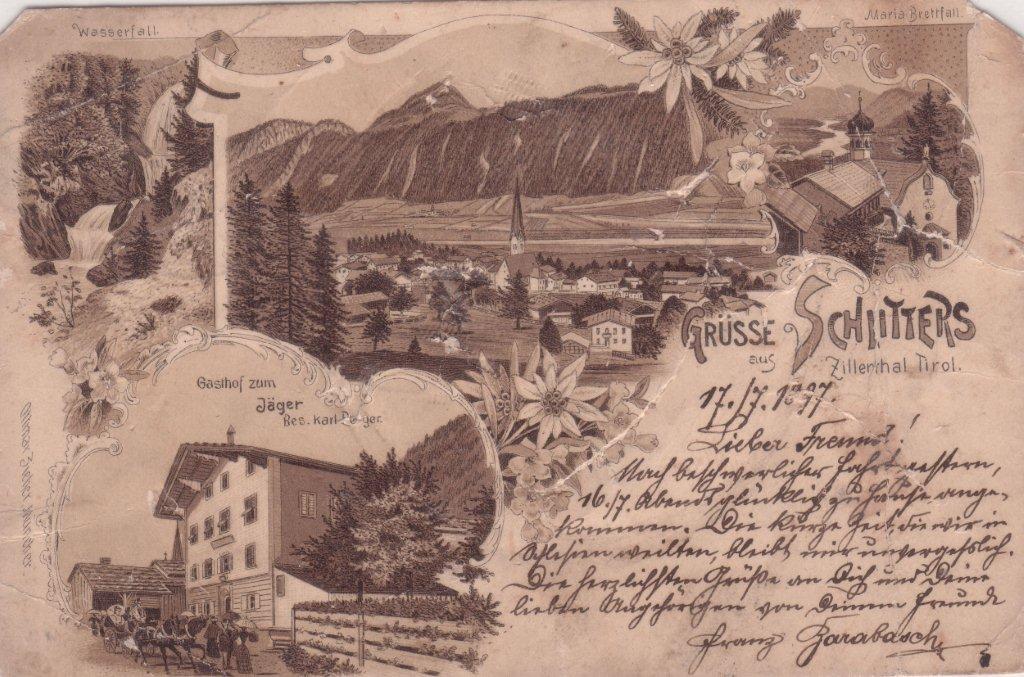 Wasserfall.
Maria Brettfall.
GRÜSSE
aus
SCHLITTERS
Zillerthal Tirol.
Gasthof zum
Jäger
Bes. Karl
17./7. 1897.
Lieber Freund!
Nach beschwerlicher Fahrt gestern,
16./7. Abends glücklich zu Hause ange-
kommen. Die kurze Zeit, die wir in
Schlesien weilten, bleibt mir unvergesslich.
Die herzlichsten Grüße an Dich und Deine
lieben Angehörigen von Deinem Freunde
Franz Zarabasch